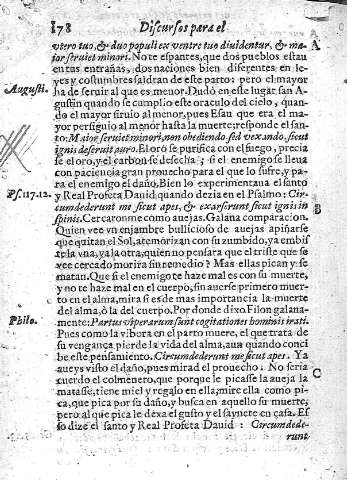 178 Discursos para el
vtero tuo, & duo populi ex ventre tuo diuidentur, & ma- A
ior seruiet minori. No te espantes, que dos pueblos estau
en tus entrañas, dos naciones bien diferentes en le-
yes y costumbres saldran de este parto: pero el mayor
Augusti. ha de seruir al que es menor. Dudò en este lugar san A-
gustin quando se cumplio este oraculo del cielo, quan-
do el mayor siruio al menor, pues Esau que era el ma-
yor persiguio al menor hasta la muerte; responde el san-
to: Maior seruiet minori, non obediendo sed vexando, sicut
ignis deseruit auro. El oro se purifica con el fuego, precia
se el oro, y el carbon se desecha; si el enemigo se lleua
con paciencia gran prouecho para el que lo sufre, y pa-
ra el enemigo el daño. Bien lo experimentaua el santo
Ps. 117. 12. y Real Profeta Dauid quando dezia en el Psalmo: Cir-
cumdederunt me sicut apes, & exarserunt sicut ignis in B
spinis. Cercaronme como auejas. Galana comparacion.
Quien vee vn enjambre bullicioso de auejas apiñarse
que quitan el Sol, atemorizan con su zumbido, ya embis
te la vna, ya la otra, quien no pensara que el triste que se
vee cercado morira sin remedio? Mas ellas pican y se
matan. Que si el enemigo te haze mal es con su muerte,
y no te haze mal en el cuerpo, sin auerse primero muer-
to en el alma, mira si es de mas importancia la muerte
del alma, ò la del cuerpo. Por donde dixo Filon galana-
Philo. mente: Partus viperarum sunt cogitationes hominis irati.
Pues como la vibora en el parto muere, el que trata de
su vengança pierde la vida del alma, aun quando conci
be este pensamiento. Circumdederunt me sicut apes. Ya
aueys visto el daño, pues mirad el prouecho. No seria C
cuerdo el colmenero, que porque le picasse la aueja la
matasse, tiene miel y regalo en ella; mire ella como pi-
ca, que pica por su daño, y busca en aquello su muerte,
pero al que pica le dexa el gusto y el saynete en casa. Es
so dize el santo y Real Profeta Dauid: Circumdede-
runt